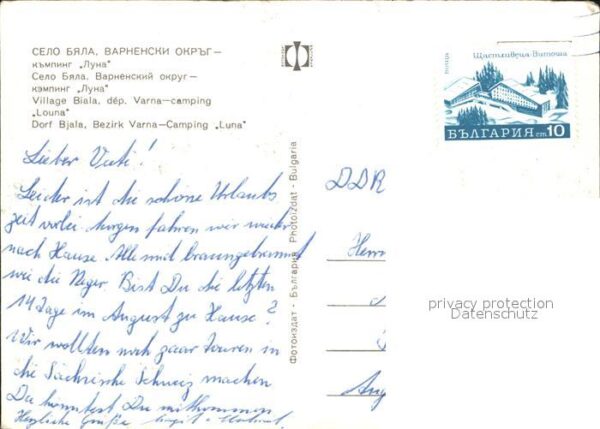 СЕЛО БЯЛА, ВАРНЕНСКИ ОКРЪГ –
къмпинг „Луна"
Село Бяла, Варненский округ –
кэмпинг „Луна"
Village Biala, dép. Varna–camping
„Louna"
Dorf Bjala, Bezirk Varna–Camping „Luna"
Lieber Vati!
Leider ist die schöne Urlaubs
zeit vorbei morgen fahren wir wieder
nach Hause. Alle sind braungebrannt
wie die Neger. Bist Du die letzten
14 Tage im August zu Hause?
Wir wollten noch paar Touren in
die Sächsische Schweiz machen
Du könntest Du mitkommen
Herzliche Grüße
Фотоиздат - България Photoizdat - Bulgaria
поща
Щастливеца-Витоша
БЪЛГАРИЯ ст 10
DDR
Herrn
privacy protection
Datenschutz